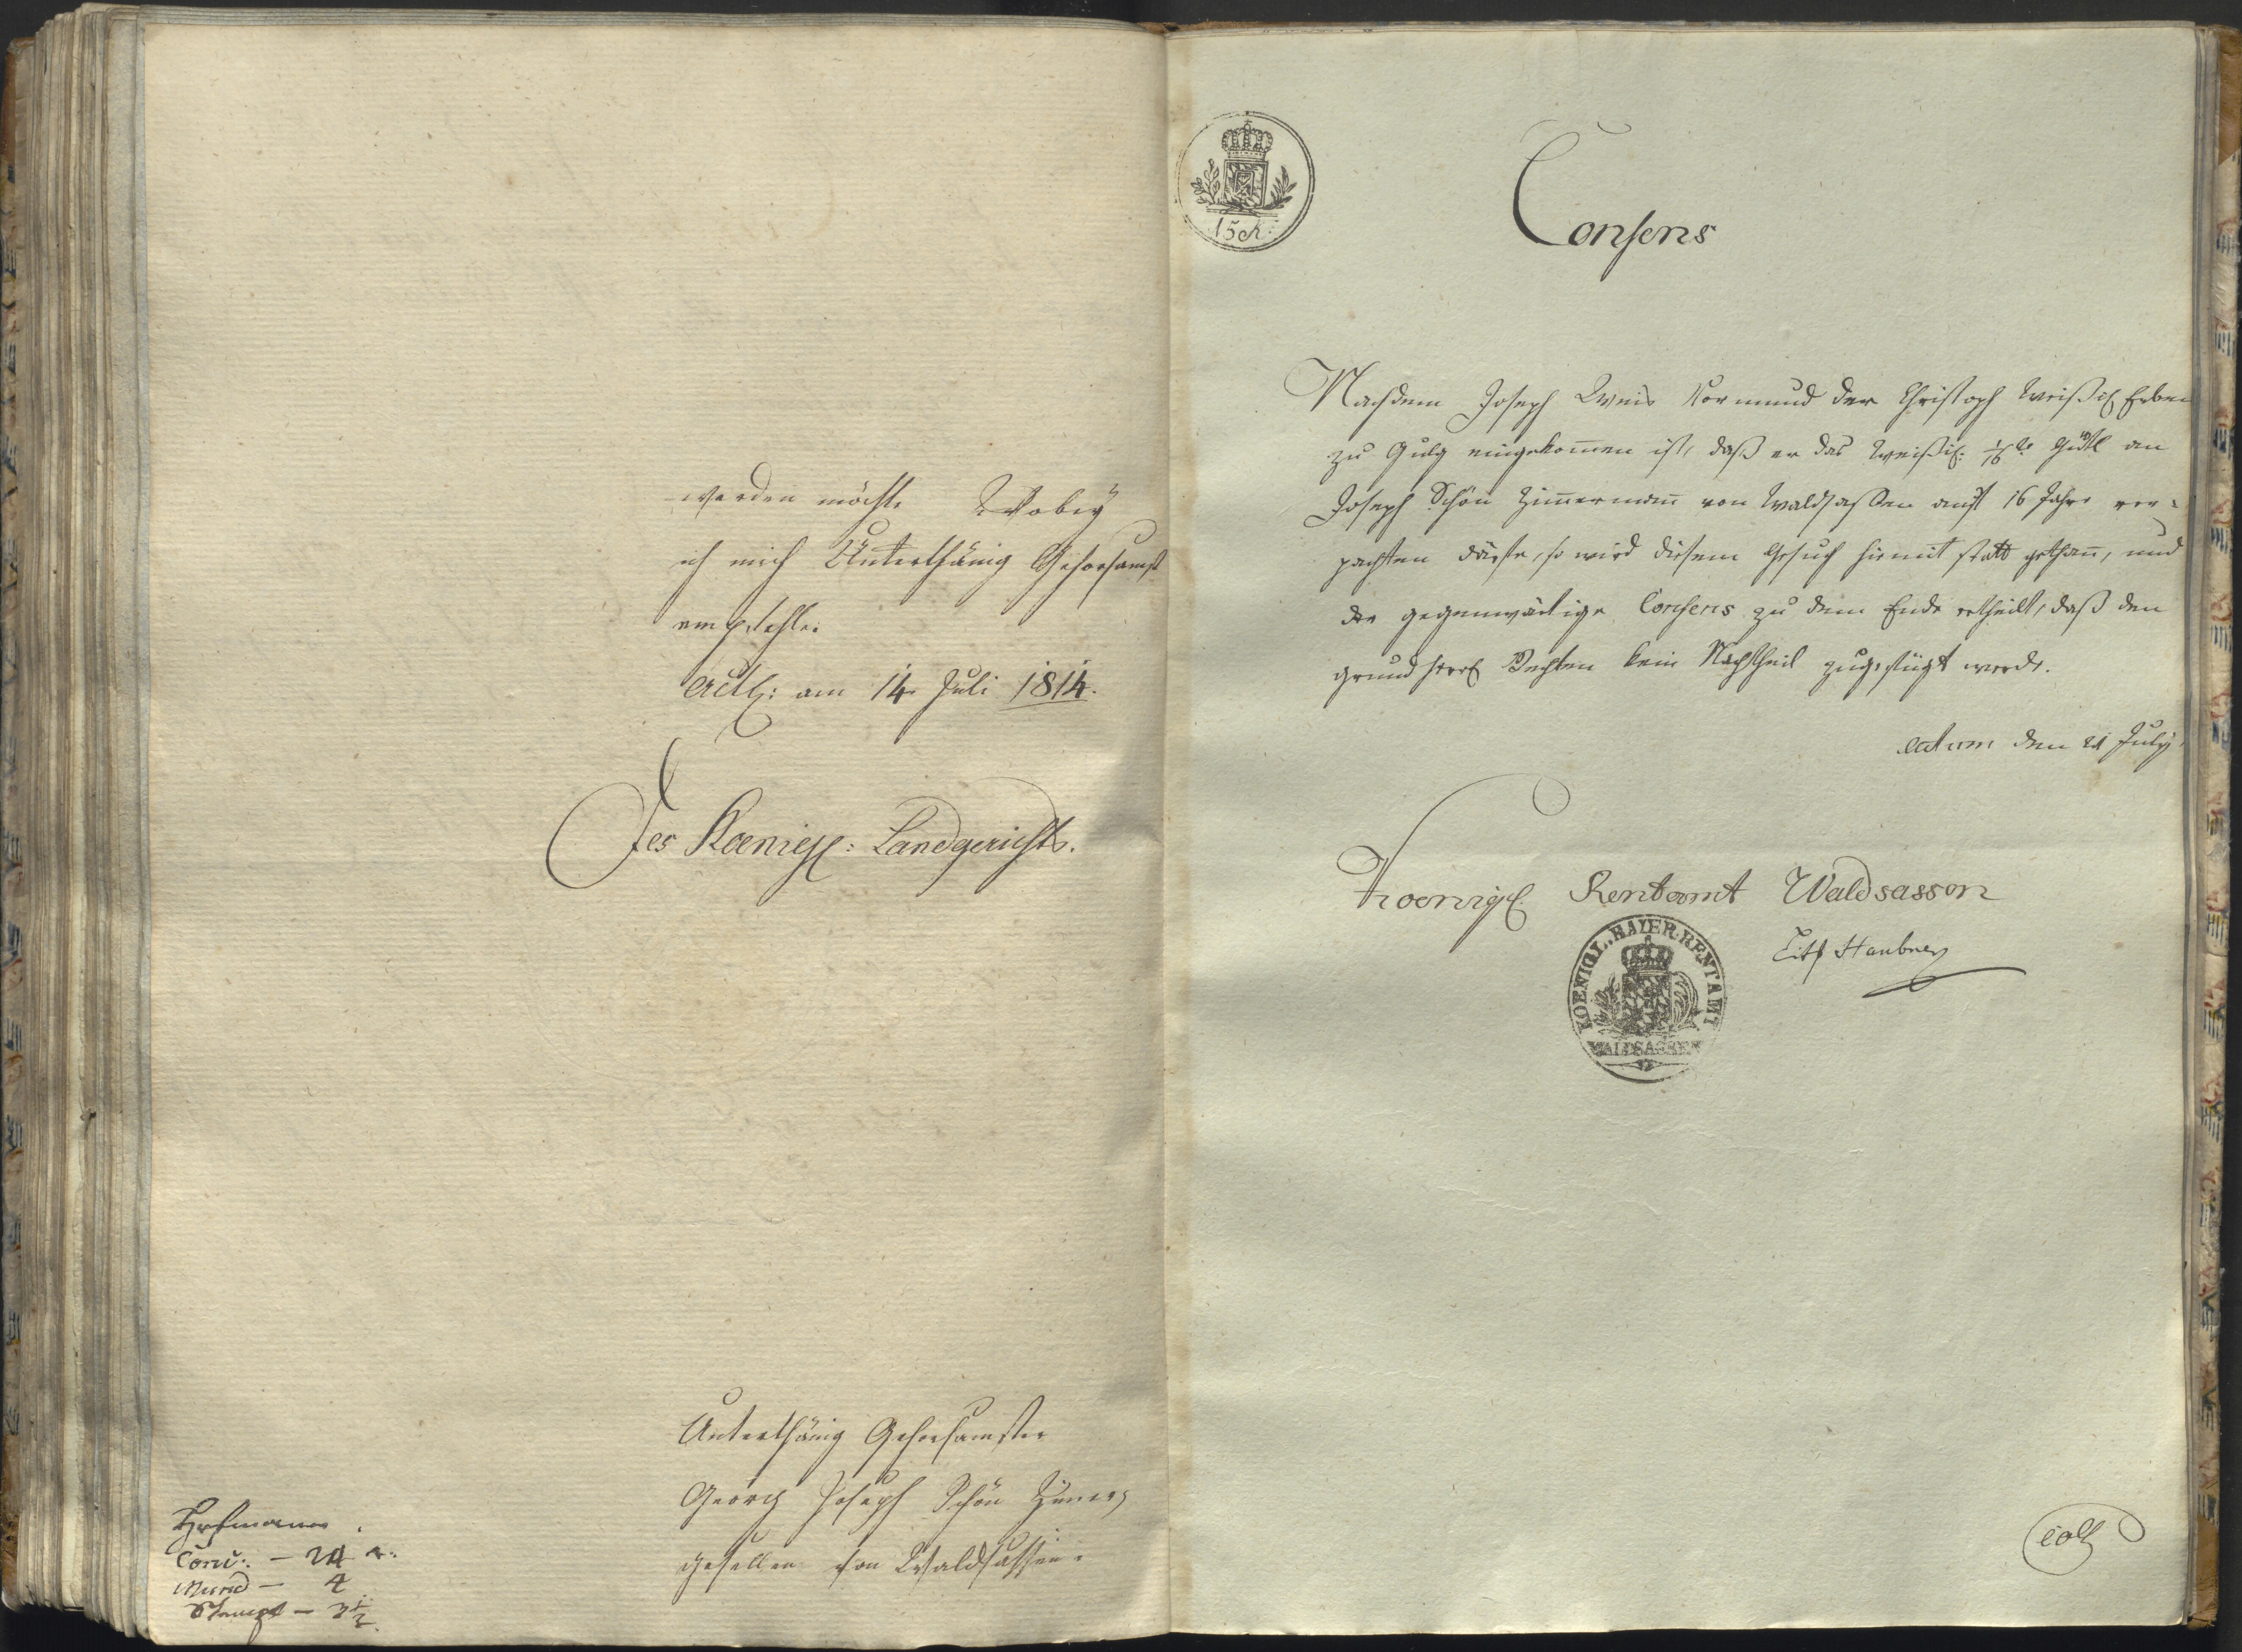 werden möchte Wobey
ich mich Unterthänig Gehorsamst
empfehle.
Actl: am 14 Juli 1814.
Des Koenigl: Landgerichts.
Unterthänig Gehorsamster
Georg Joseph Schön Zimer,
gesellen von Waldsassen.
Hofmann.
Conc: – 24 x:
Mund – 4
Stempl – 3 1/2.
15 Kr.
Consens
Nachdem Joseph Weis Vormund der Christoph Weißisch Erben
zu eingekom̄en ist, daß er das Weißis: 1/16tl Gütl an
Joseph Schön Zim̄erman̄ von Waldsassen auf 16 Jahre ver-
pachten dürfe, so wird diesem Gesuch hiemit statt gethan̄, und
der gegenwärtige Consens zu dem Ende ertheilt, daß den
grundherrl Rechten kein Nachtheil zugefügt werde.
Actum den 21 July
Koenigl. Rentamt Waldsassen
KOENIGL. BAIER. RENTAMT
WALDSASSEN
Haubner